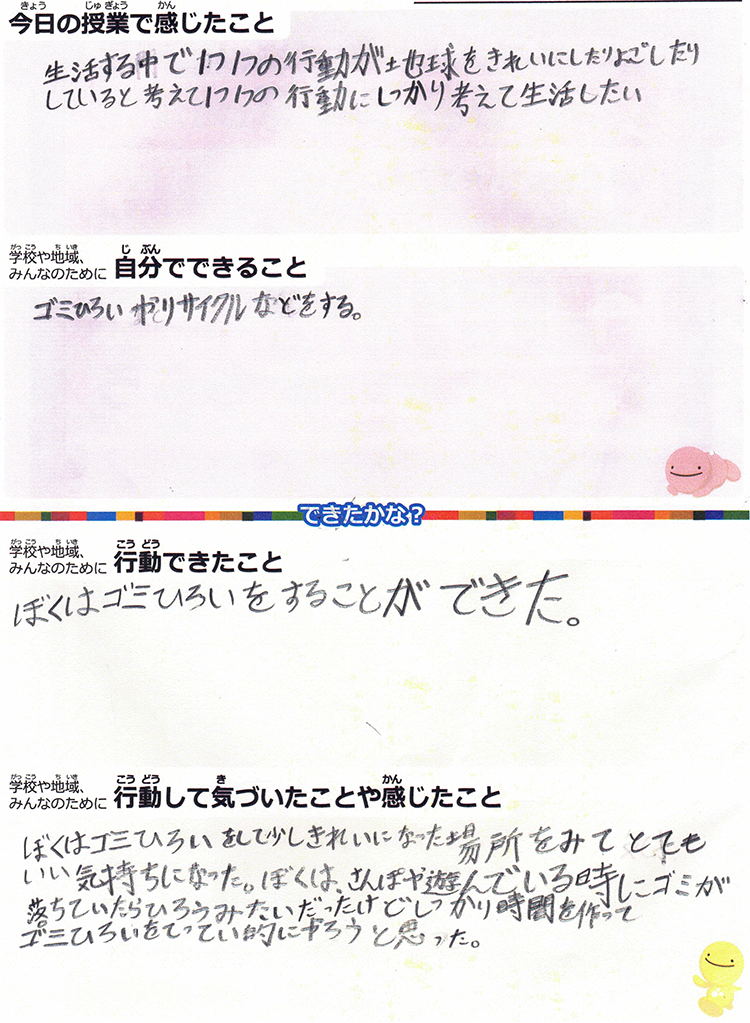 今日の授業で感じたこと
生活する中で1つ1つの行動が地球をきれいにしたりよごしたり
していると考えて1つ1つの行動にしっかり考えて生活したい
学校や地域、
みんなのために 自分でできること
ゴミひろいやリサイクルなどをする。
できたかな?
学校や地域、
みんなのために 行動できたこと
ぼくはゴミひろいをすることができた。
学校や地域、
みんなのために 行動して気づいたことや感じたこと
ぼくはゴミひろいをして少しきれいになった場所をみてとても
いい気持ちになった。ぼくは、さんぽや遊んでいる時にゴミが
落ちていたらひろうみたいだったけどしっかり時間を作って
ゴミひろいをてってい的にやろうと思った。